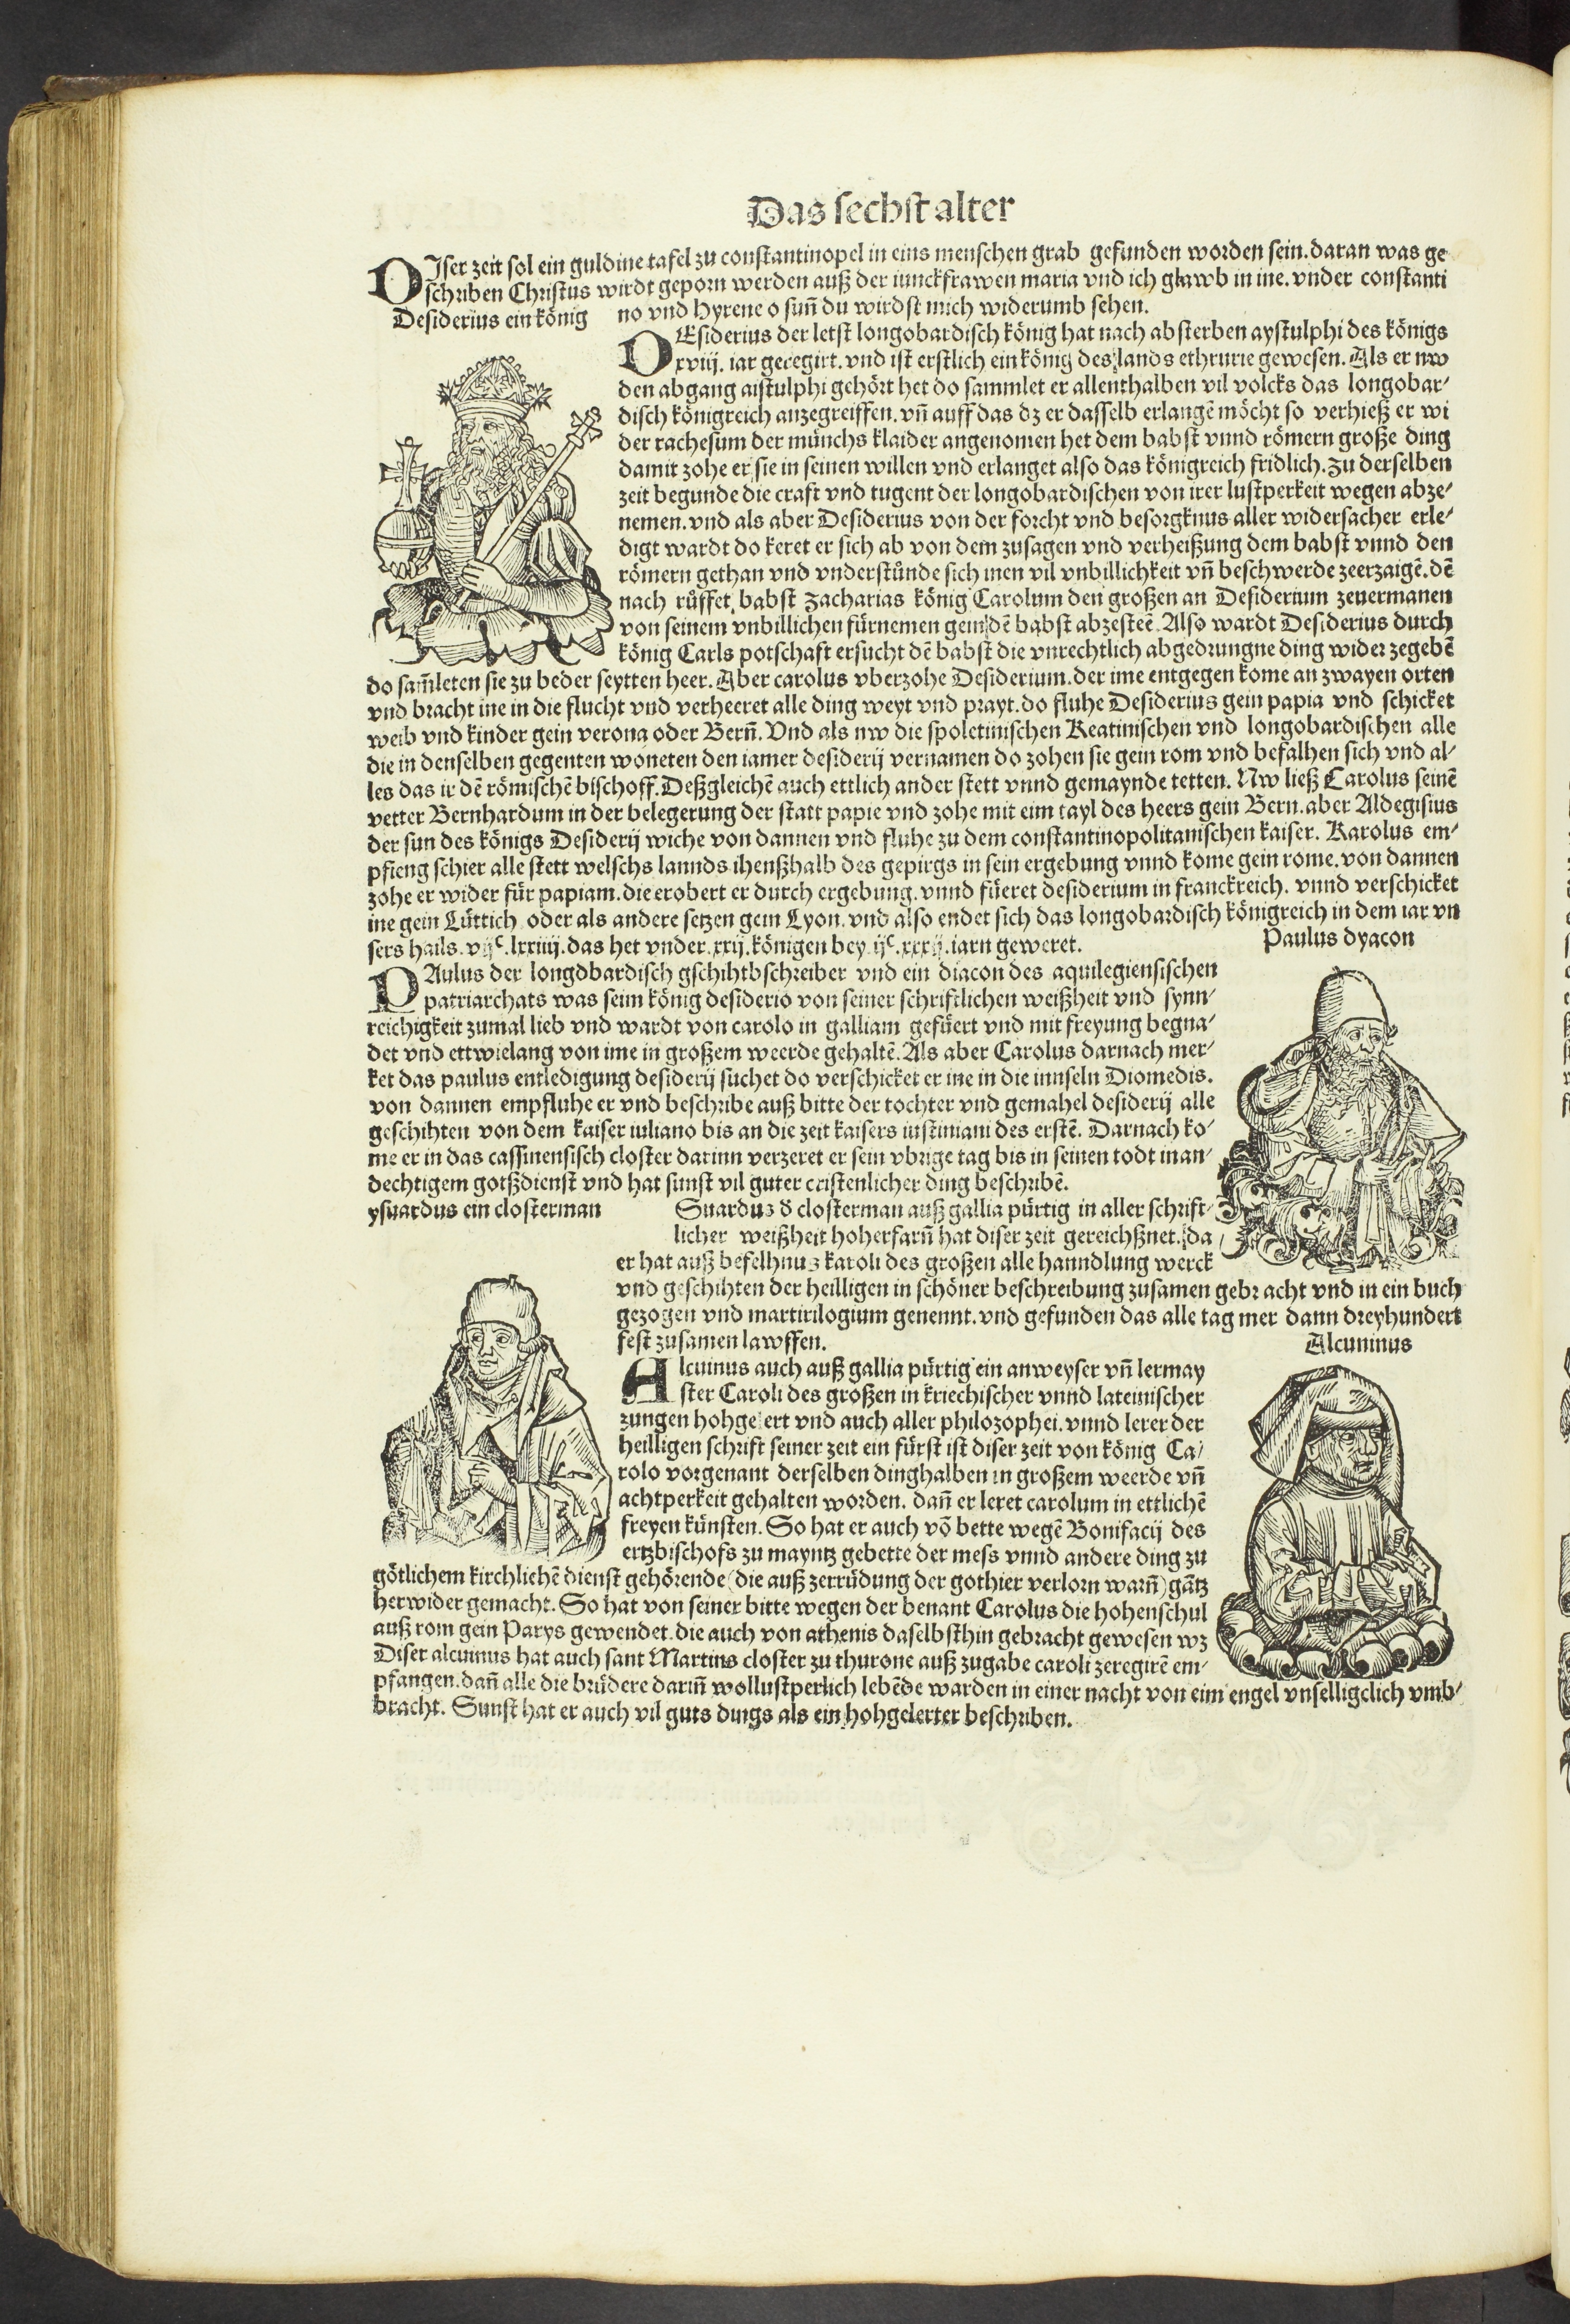 Das sechst alter
DIser zeit sol ein guldine tafel zu constantinopel in eins menschen grab gefunden worden sein. daran was ge
schriben Christus wirdt geporn werden auß der iunckfrawen maria vnd ich glawb in ine. vnder constanti
no vnd Hyrene o sun̄ du wirdst mich widerumb sehen.
Desiderius ein könig
DEsiderius der letst longobardisch könig hat nach absterben aystulphi des königs
xviij. iar geregirt. vnd ist erstlich ein könig des lands ethrurie gewesen. Als er nw
den abgang aistulphi gehört het do sammlet er allenthalben vil volcks das longobar⸗
disch königreich anzegreiffen. vn̄ auff das dz er dasselb erlangē möcht so verhieß er wi
der rachesum der münchs klaider angenomen het dem babst vnnd römern große ding
damit zohe er sie in seinen willen vnd erlanget also das königreich fridlich. Zu derselben
zeit begunde die craft vnd tugent der longobardischen von irer lustperkeit wegen abze⸗
nemen. vnd als aber Desiderius von der forcht vnd besorgknus aller widersacher erle⸗
digt wardt do keret er sich ab von dem zusagen vnd verheißung dem babst vnnd den
römern gethan vnd vnderstůnde sich inen vil vnbillichkeit vn̄ beschwerde zeerzaigē. dē
nach růffet babst Zacharias könig Carolum den großen an Desiderium zeuermanen
von seinem vnbillichen fürnemen gein dē babst abzesteē. Also wardt Desiderius durch
könig Carls potschaft ersucht dē babst die vnrechtlich abgedrungne ding wider zegebē
do sam̄leten sie zu beder seytten heer. Aber carolus vberzohe Desiderium. der ime entgegen kome an zwayen orten
vnd bracht ine in die flucht vnd verheeret alle ding weyt vnd prayt. do fluhe Desiderius gein papia vnd schicket
weib vnd kinder gein verona oder Bern̄. Vnd als nw die spoletinischen Reatinischen vnd longobardischen alle
die in denselben gegenten woneten den iamer desiderij vernamen do zohen sie gein rom vnd befalhen sich vnd al⸗
les das ir dē römischē bischoff. Deßgleichē auch ettlich ander stett vnnd gemaynde tetten. Nw ließ Carolus seinē
vetter Bernhardum in der belegerung der statt papie vnd zohe mit eim tayl des heers gein Bern. aber Aldegisius
der sun des königs Desiderij wiche von dannen vnd fluhe zu dem constantinopolitanischen kaiser. Karolus em⸗
pfieng schier alle stett welschs lannds ihenßhalb des gepirgs in sein ergebung vnnd kome gein rome. von dannen
zohe er wider für papiam. die erobert er durch ergebung. vnnd füeret desiderium in franckreich. vnnd verschicket
ine gein Lüttich oder als andere setzen gein Lyon. vnd also endet sich das longobardisch königreich in dem iar vn
sers hails. vijᶜ. lxxiiij. das het vnder. xxij. königen bey. ijᶜ. xxxij. iarn geweret.
Paulus dyacon
PAulus der longobardisch gschihtbschreiber vnd ein diacon des aquilegiensischen
patriarchats was seim könig desiderio von seiner schriftlichen weißheit vnd synn⸗
reichigkeit zumal lieb vnd wardt von carolo in galliam gefüert vnd mit freyung begna⸗
det vnd ettwielang von ime in großem weerde gehaltē. Als aber Carolus darnach mer⸗
ket das paulus entledigung desiderij suchet do verschicket er ine in die innseln Diomedis.
von dannen empfluhe er vnd beschribe auß bitte der tochter vnd gemahel desiderij alle
geschihten von dem kaiser iuliano bis an die zeit kaisers iustiniani des erstē. Darnach ko⸗
me er in das cassinensisch closter darinn verzeret er sein vbrige tag bis in seinen todt in an⸗
dechtigem gotßdienst vnd hat sunst vil guter cristenlicher ding beschribē.
ysuardus ein closterman
Suardus d̕ closterman auß gallia pürtig in aller schrift⸗
licher weißheit hoherfarn̄ hat diser zeit gereichßnet. da
er hat auß befelhnus karoli des großen alle hanndlung werck
vnd geschihten der heilligen in schöner beschreibung zusamen gebracht vnd in ein buch
gezogen vnd martirilogium genennt. vnd gefunden das alle tag mer dann dreyhundert
fest zusamen lawffen.
Alcuninus
Alcuinus auch auß gallia pürtig ein anweyser vn̄ lermay
ster Caroli des großen in kriechischer vnnd lateinischer
zungen hohgelert vnd auch aller philozophei. vnnd lerer der
heilligen schrift seiner zeit ein fürst ist diser zeit von könig Ca⸗
rolo vorgenant derselben dinghalben in großem weerde vn̄
achtperkeit gehalten worden. dan̄ er leret carolum in ettlichē
freyen künsten. So hat er auch vō bette wegē Bonifacij des
ertzbischofs zu mayntz gebette der mess vnnd andere ding zu
götlichem kirchlichē dienst gehörende (die auß zerrüdung der gothier verlorn warn̄) gātz
herwider gemacht. So hat von seiner bitte wegen der benant Carolus die hohenschul
auß rom gein Parys gewendet. die auch von athenis daselbsthin gebracht gewesen wz
Diser alcuinus hat auch sant Martins closter zu thurone auß zugabe caroli zeregirē em⸗
pfangen. dan̄ alle die brüdere darin̄ wollustperlich lebēde warden in einer nacht von eim engel vnselligclich vmb⸗
bracht. Sunst hat er auch vil guts dings als ein hohgelerter beschriben.